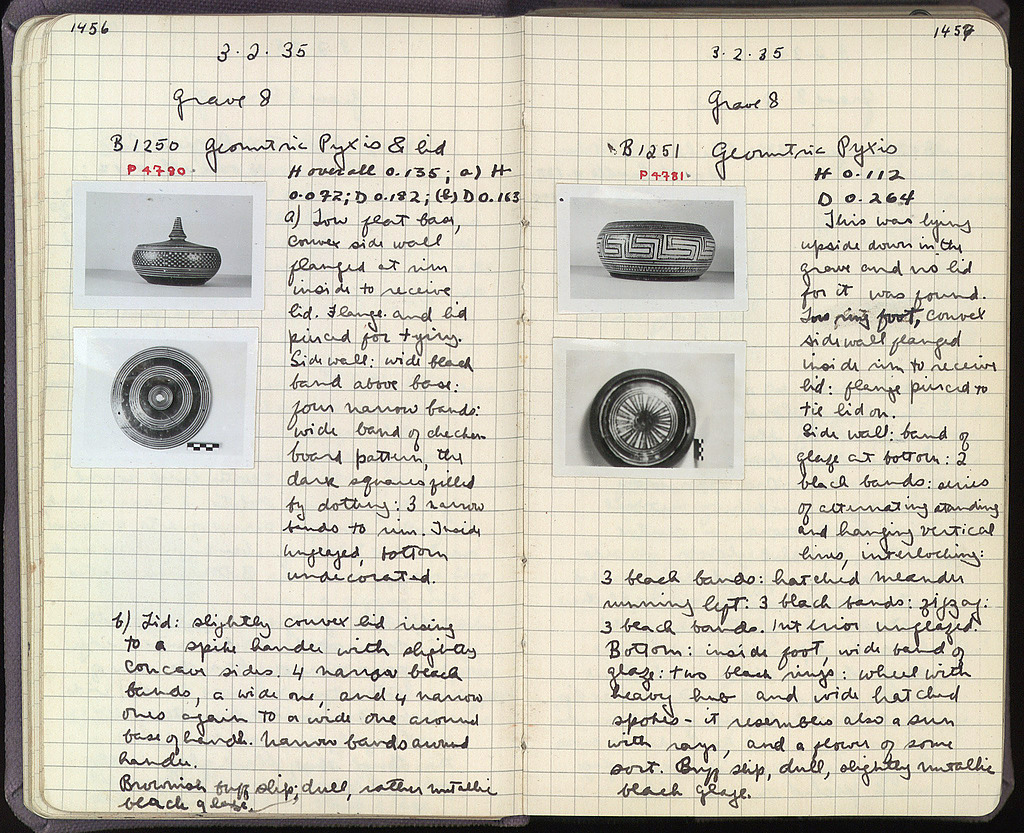 1456
3·2·35
Grave 8
B 1250 Geometric Pyxis & lid
P 4780
H overall 0.135; a) H
0.072; D 0.182; (b) D 0.163
a) Low flat base,
convex side wall
flanged at rim
inside to receive
lid. Flange and lid
pierced for tying.
Side wall: wide black
band above base:
four narrow bands:
wide band of checker-
board pattern, the
dark squares filled
by dotting: 3 narrow
bands to rim. Inside
unglazed, bottom
undecorated.
b) Lid: slightly convex lid rising
to a spike handle with slightly
concave sides. 4 narrow black
bands, a wide one, and 4 narrow
ones again to a wide one around
base of handle. Narrow bands around
handle.
Brownish buff slip; dull, rather metallic
black glaze.
1457
3·2·35
Grave 8
B 1251 Geometric Pyxis
P 4781
H 0.112
D 0.264
This was lying
upside down in the
grave and no lid
for it was found.
Low ring foot, convex
side wall flanged
inside rim to receive
lid: flange pierced to
tie lid on.
Side wall: band of
glaze at bottom: 2
black bands: series
of alternating standing
and hanging vertical
lines, interlocking:
3 black bands: hatched meander
running left: 3 black bands: zigzag:
3 black bands. Interior unglazed.
Bottom: inside foot, wide band of
glaze: two black rings: wheel with
heavy hub and wide hatched
spokes - it resembles also a sun
with rays, and a flower of some
sort. Buff slip, dull, slightly metallic
black glaze.